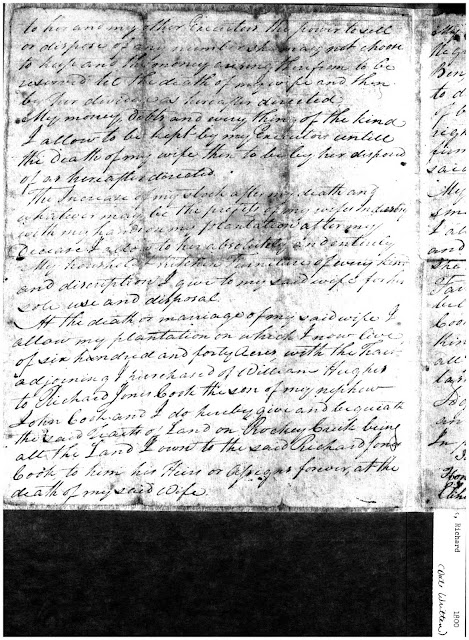 to her and my other Executors the power to sell
or dispose of any number she may not choose
to keep and the money arising therefrom to be
reserved til the death of my wife and then
by her divided as hereafter directed.
My money, debts and every thing of the kind
I allow to be kept by my Executors untill
the Death of my wife then to be by her disposed
of as hereafter directed.
The Increase of my stock after my death and
whatever may be the profits of my wifes
with my hands on my plantation after my
Decease I do to her absolutely and entirely
My houshold kitchen furniture of every kind
and discription I give to my said wife for her
sole use and disposal
At the death or marriage of my said wife I
allow my plantation on which I now live
of six hundred and forty Acres with the
adjoining I purchased of William Hughes
to Richard Jones Cook the son of my nephew
John Cook and I do hereby give and bequeath
the said tracts of Land on Rockey Creek being
all the Land I own to the said Richard Jones
Cook to him his Heirs or Assigns forever, at the
death of my said Wife.
to d
of b
said
My
I al
and
all
an
In
, Richard
1800
(Date Written)